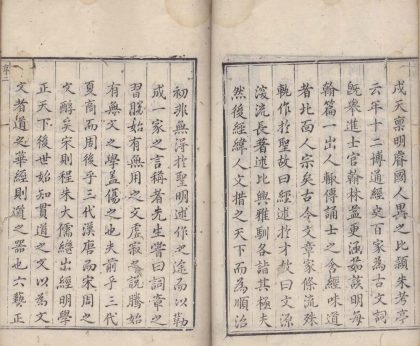 戍天稟明睿國人異之比頴朱考亭
云年十二博通經史百家為古文詞
既舉進士官翰林益更涵茹該明每
翰篇一出人輙傳誦士之含經味道
者北面人宗矣古今文章家條流殊
軌作於聖故曰經述於才故曰文源
流長著述比興雅馴各詣其極夫
然後經緯人文措之天下而為順治
初非無得於聖明述作之途而以勒
成一家之言稱者先生嘗曰詞章之
習勝始有無用之文虛寂說勝始
有無文之學蓋傷之也夫前乎三代
夏商而周後乎三代漢唐而宋周之
文醇矣宋則程朱大儒繼出經明學
正天下後世始知貫道之文以為文
文者道之華經則道之器也六藝正